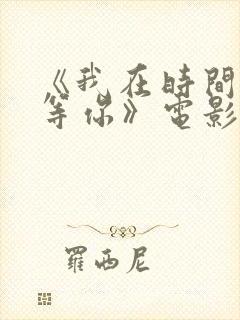 《我在時間
等你》電影
羅西尼